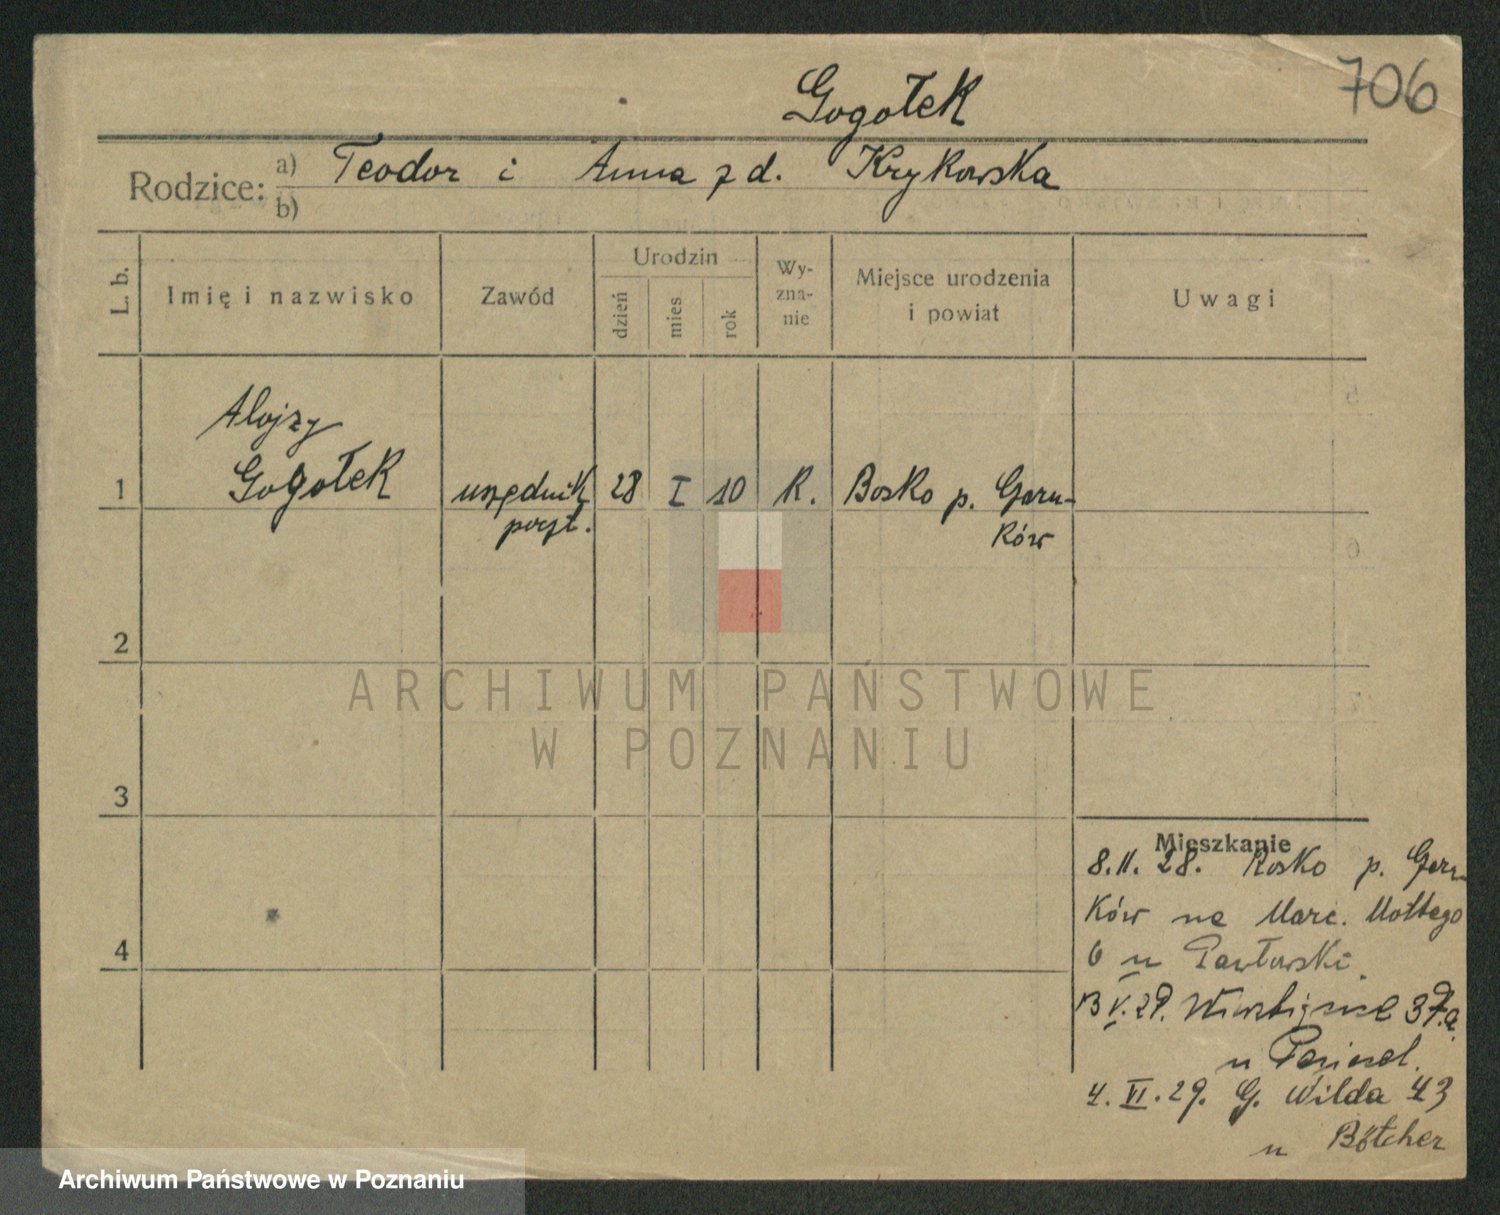 706
Gogołek
Rodzice: a) Teodor i Anna z d. Krykowska
b)
L. b.
Imię i nazwisko
Zawód
Urodzin
dzień
mies
rok
Wy-
zna-
nie
Miejsce urodzenia
i powiat
Uwagi
Alojzy
1 Gogołek urzędnik 28 I 10 R. Bosko p. Czarn-
poczt. ków
2
ARCHIWUM PAŃSTWOWE
W POZNANIU
3
Mieszkanie
8.II.28. Rosko p. Czarn-
ków na Marc. Mottego
6 u Pawłowski.
V.29. 37.a
u
4.VI.29. G. Wilda 43
u Bötcher
4
Archiwum Państwowe w Poznaniu